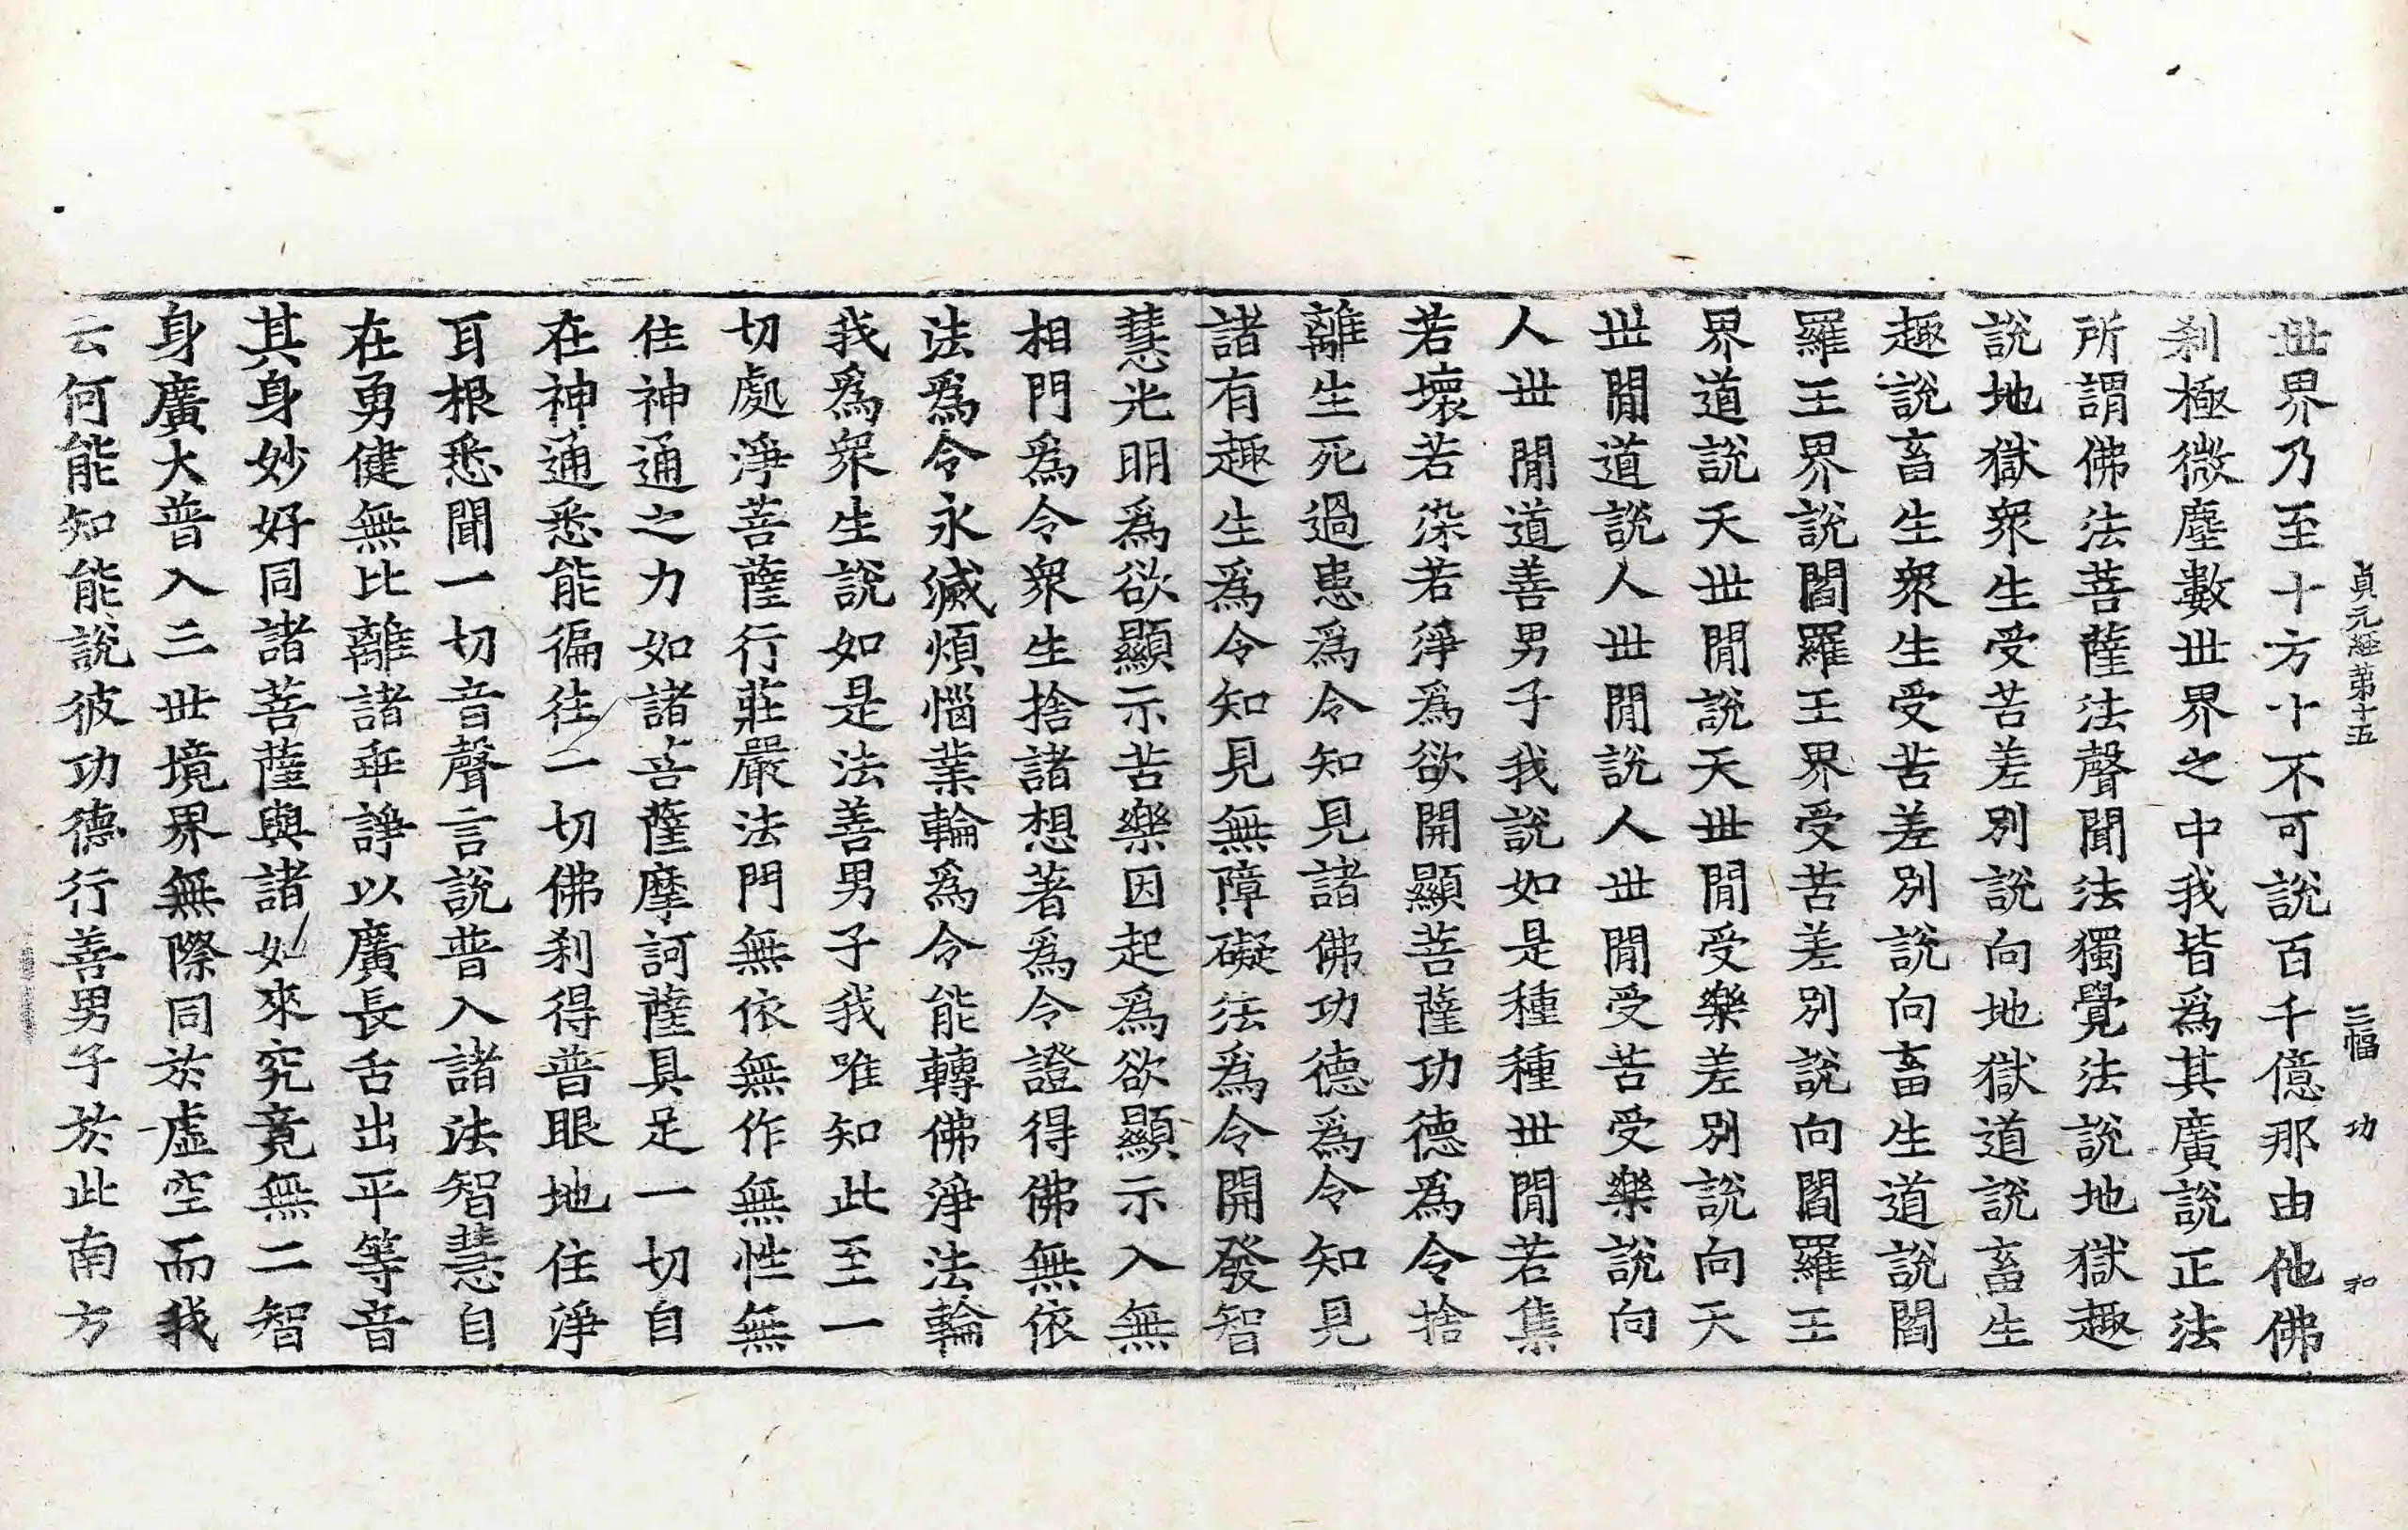 貞元經第十五　三幅　功　和
世界乃至十方十不可說百千億那由他佛
刹極微塵數世界之中我皆爲其廣說正法
所謂佛法菩薩法聲聞法獨覺法說地獄趣
說地獄衆生受苦差別說向地獄道說畜生
趣說畜生衆生受苦差別說向畜生道說閻
羅王界說閻羅王界受苦差別說向閻羅王
界道說天世閒說天世閒受樂差別說向天
世閒道說人世閒說人世閒受苦受樂說向
人世閒道善男子我說如是種種世閒若集
若壞若染若淨爲欲開顯菩薩功德爲令捨
離生死過患爲令知見諸佛功德爲令知見
諸有趣生爲令知見無障礙法爲令開發智
慧光明爲欲顯示苦樂因起爲欲顯示入無
相門爲令衆生捨諸想著爲令證得佛無依
法爲令永滅煩惱業輪爲令能轉佛淨法輪
我爲衆生說如是法善男子我唯知此至一
切處淨菩薩行莊嚴法門無依無作無性無
住神通之力如諸菩薩摩訶薩具足一切自
在神通悉能徧往一切佛刹得普眼地住淨
耳根悉聞一切音聲言說普入諸法智慧自
在勇健無比離諸乖諍以廣長舌出平等音
其身妙好同諸菩薩與諸如來究竟無二智
身廣大普入三世境界無際同於虛空而我
云何能知能說彼功德行善男子於此南方